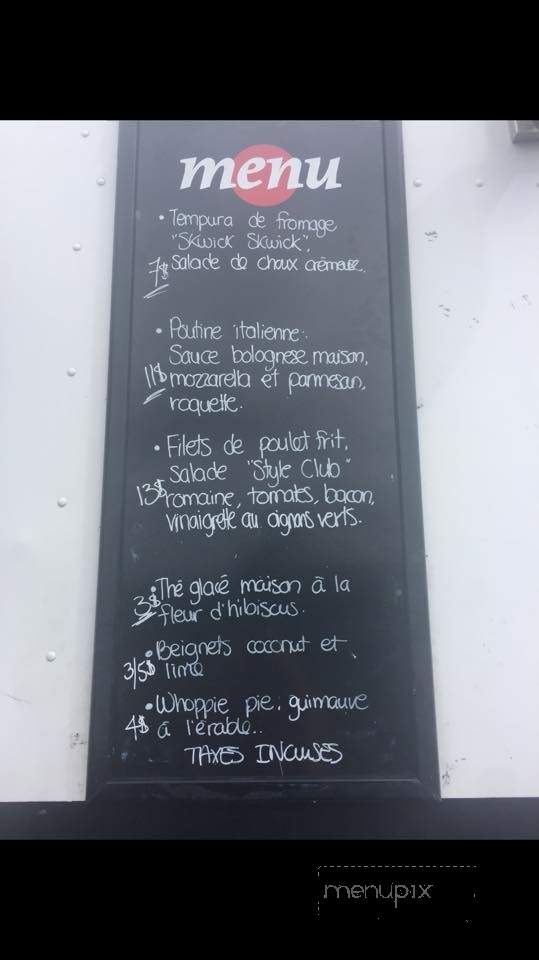 menu
• Tempura de fromage
"Skwick Skwick",
7$ Salade de choux crémeuse.
• Poutine italienne:
Sauce bolognese maison,
11$ mozzarella et parmesan,
roquette.
• Filets de poulet frit,
Salade "Style Club"
13$ romaine, tomates, bacon,
vinaigrette au oignons verts.
• Thé glacé maison à la
3$ fleur d'hibiscus.
• Beignets coconut et
3/5$ lime
• Whoppie pie, guimauve
4$ à l'érable..
TAXES INCLUSES
menupix